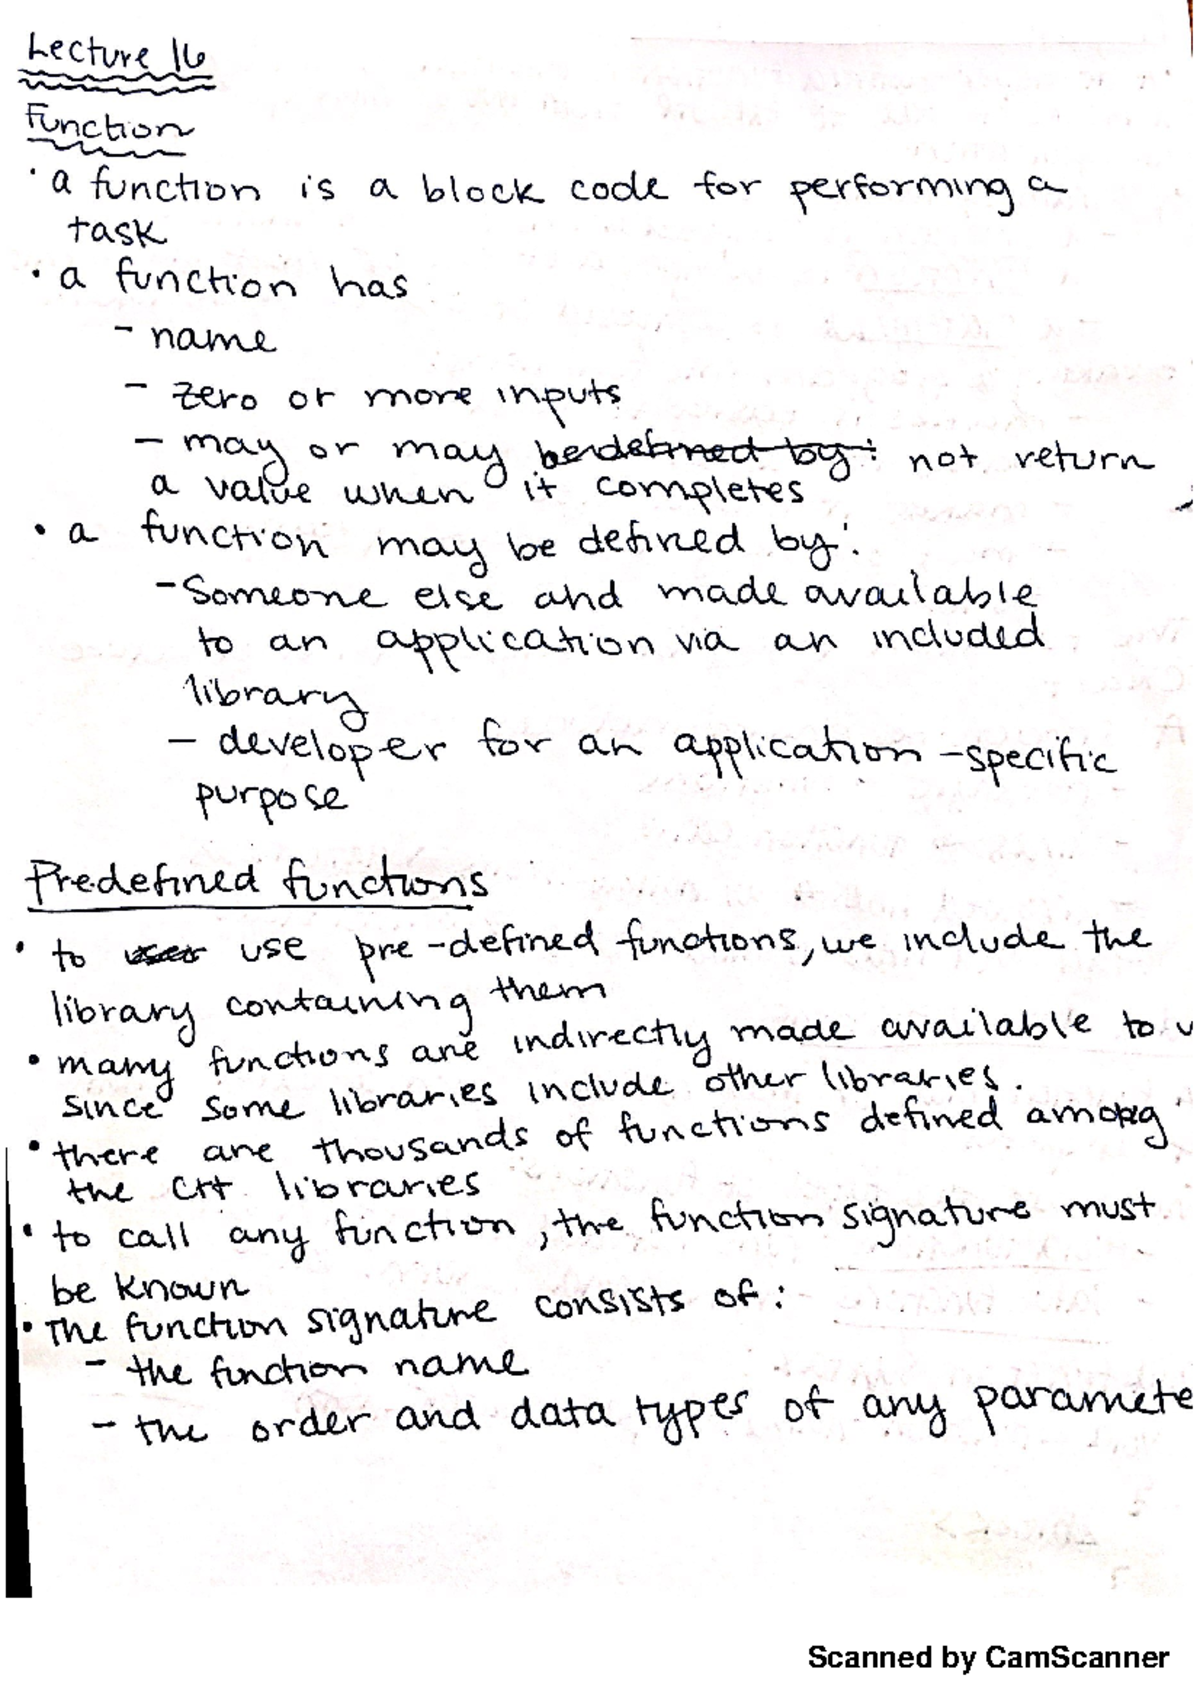 Lecture 16
Function
• a function is a block code for performing a
task
• a function has
- name
- zero or more inputs
- may or may be defined by: not return
a value when it completes
• a function may be defined by:
- Someone else and made available
to an application via an included
library
- developer for an application -specific
purpose
Predefined functions
• to user use pre-defined functions, we include the
library containing them
• many functions are indirectly made available to u
since some libraries include other libraries.
• there are thousands of functions defined among
the C++ libraries
• to call any function, the function signature must
be known
• The function signature consists of:
- the function name
- the order and data types of any paramete
Scanned by CamScanner